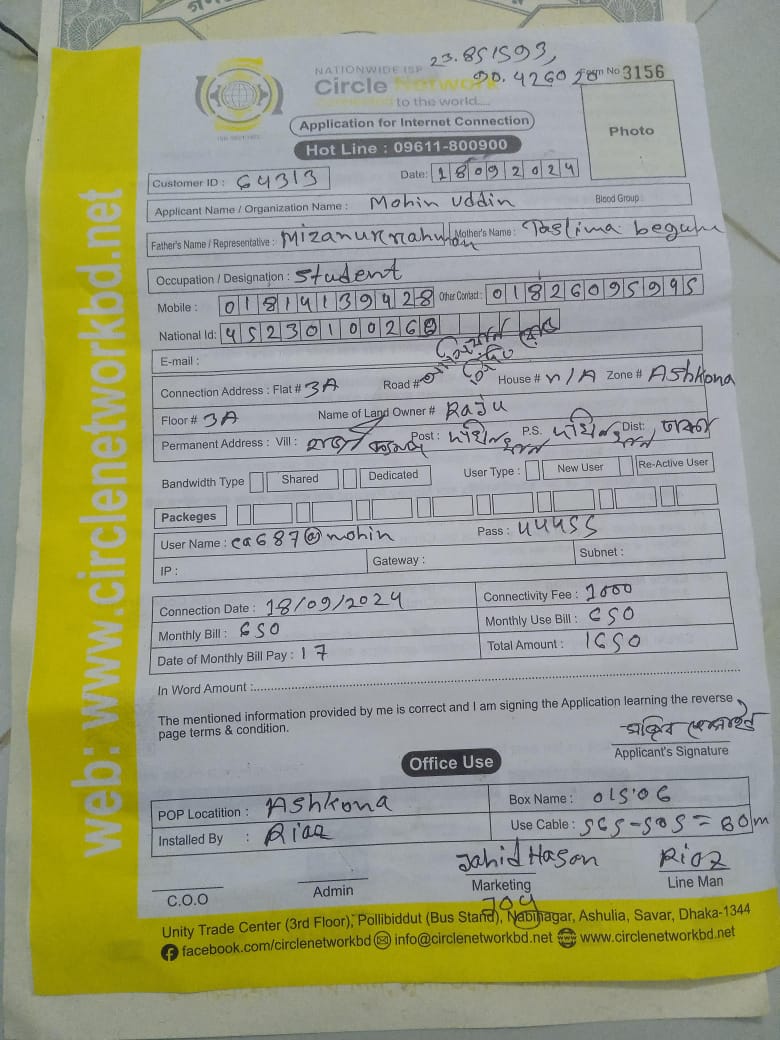 23.851593,
NATIONWIDE ISP
90.42602
Form No 3156
Circle Network
Connected to the world....
Application for Internet Connection
Hot Line : 09611-800900
Photo
Customer ID : 64313
Date: 18092024
Applicant Name / Organization Name : Mohin uddin Blood Group :
Father's Name / Representative : Mizanur rahman Mother's Name : Taslima begum
Occupation / Designation : Student
Mobile : 01814139428 Other Contact : 01826095995
National Id:
E-mail :
Connection Address : Flat # 3A Road # House # n/A Zone # Ashkona
Floor # 3A Name of Land Owner # Raju
Permanent Address : Vill : Post : P.S. Dist: ঢাকা
Bandwidth Type Shared Dedicated User Type : New User Re-Active User
Packeges
User Name : ca687@mohin Pass : 44455
IP : Gateway : Subnet :
Connection Date : 18/09/2024 Connectivity Fee : 1000
Monthly Bill : 650 Monthly Use Bill : 650
Date of Monthly Bill Pay : 17 Total Amount : 1650
In Word Amount :
The mentioned information provided by me is correct and I am signing the Application learning the reverse
page terms & condition.
Applicant's Signature
Office Use
POP Locatition : Ashkona Box Name : 015'06
Installed By : Riaz Use Cable : 565-505 = 60m
Jahid Hasan Riaz
C.O.O Admin Marketing Line Man
Joy
Unity Trade Center (3rd Floor), Pollibiddut (Bus Stand), Nabinagar, Ashulia, Savar, Dhaka-1344
facebook.com/circlenetworkbd info@circlenetworkbd.net www.circlenetworkbd.net
web: www.circlenetworkbd.net